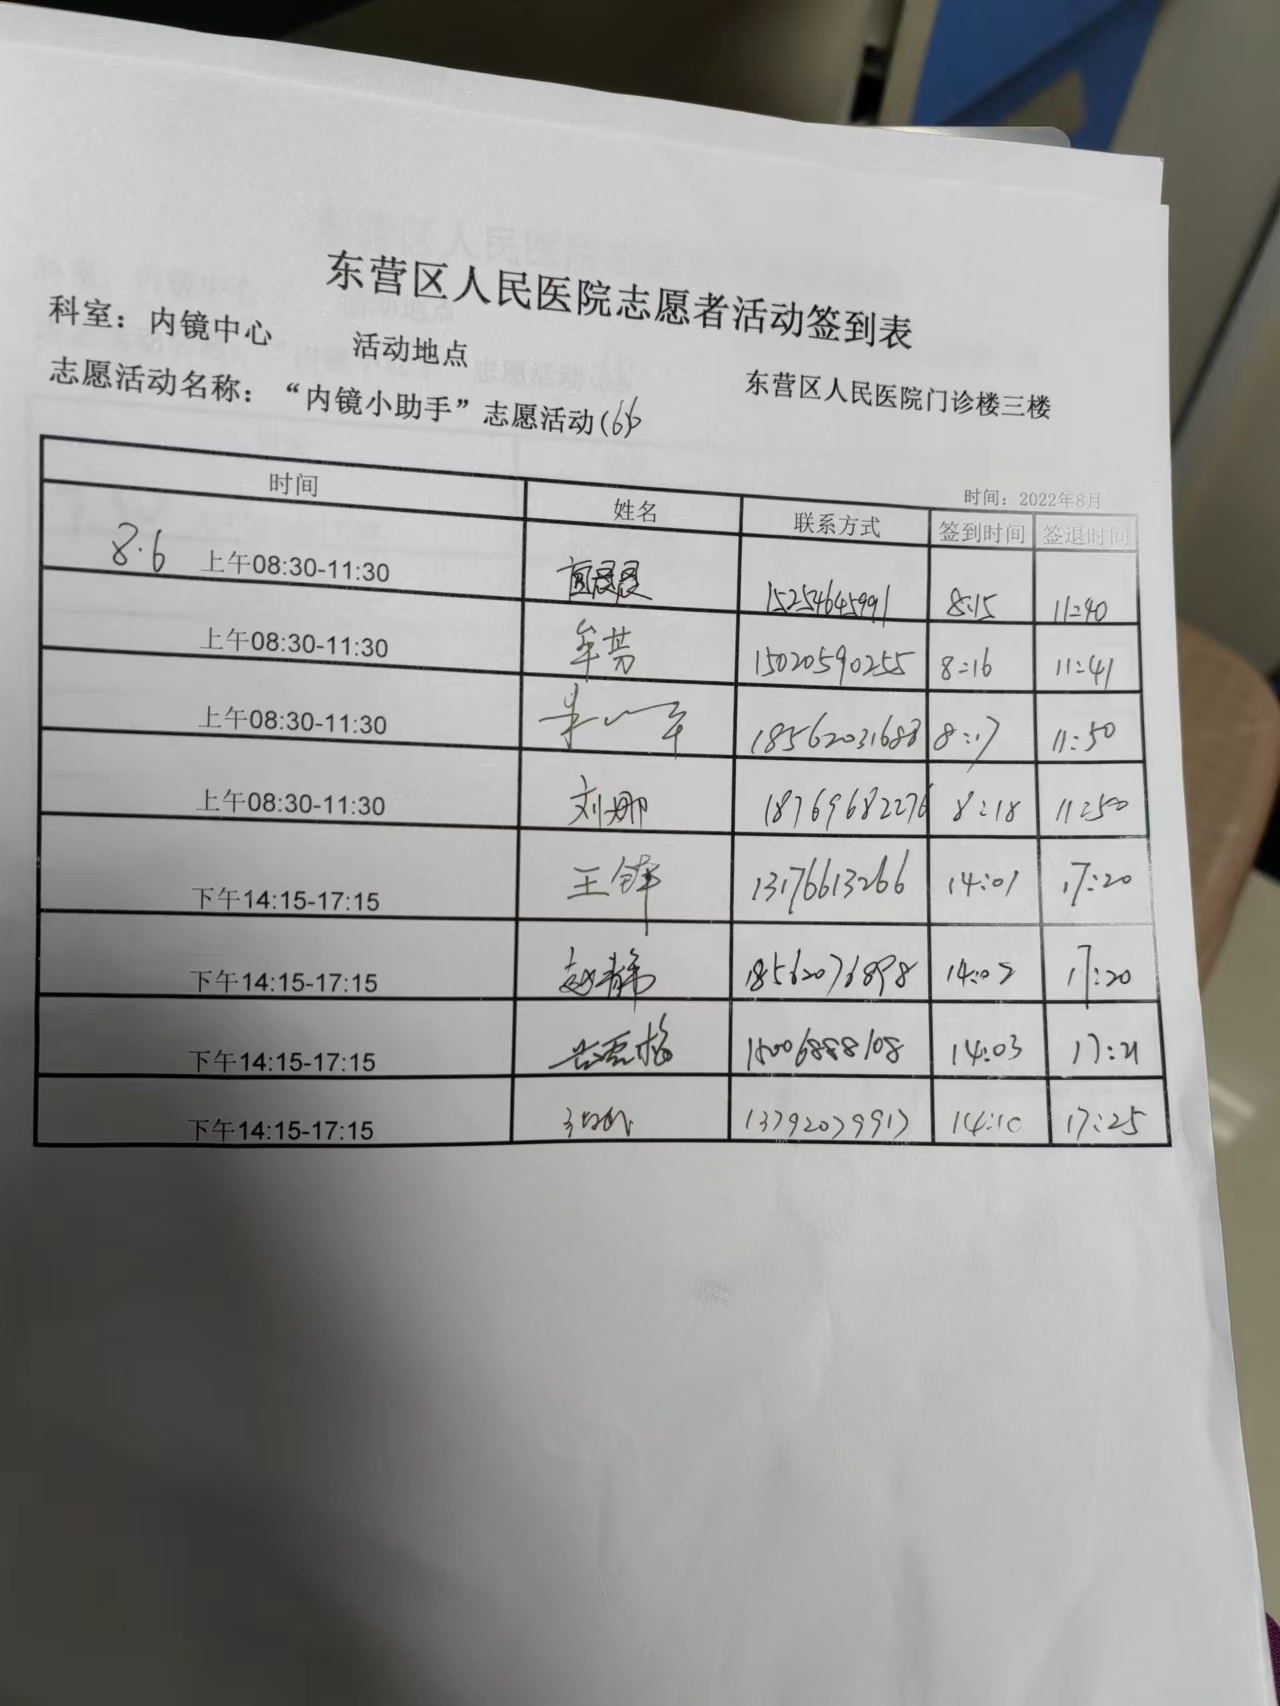 东营区人民医院志愿者活动签到表
科室：内镜中心 活动地点 东营区人民医院门诊楼三楼
志愿活动名称：“内镜小助手”志愿活动(66)
时间：2022年8月
时间 姓名 联系方式 签到时间 签退时间
8.6 上午08:30-11:30 15254645991 8:15 11:40
上午08:30-11:30 牟芳 15020590255 8:16 11:41
上午08:30-11:30 18562031683 8:17 11:50
上午08:30-11:30 刘娜 18769682276 8:18 11:50
下午14:15-17:15 王锋 13176613266 14:01 17:20
下午14:15-17:15 赵静 18562076898 14:02 17:20
下午14:15-17:15 18006888108 14:03 17:21
下午14:15-17:15 13792079917 14:10 17:25